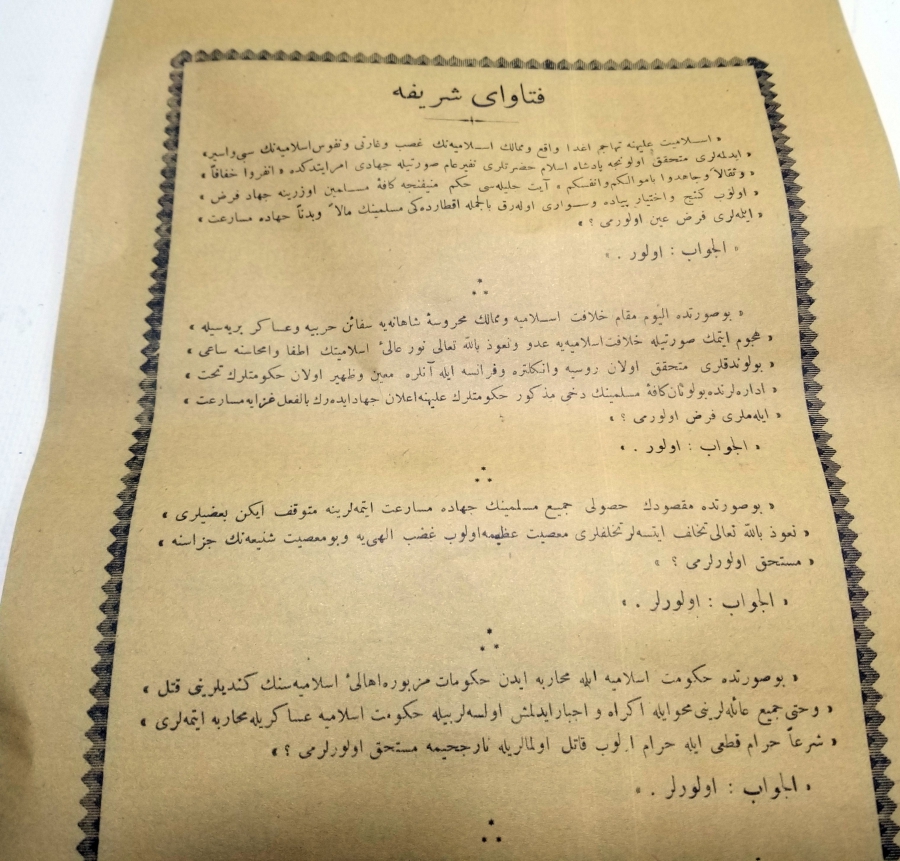 فتاوای شریفه
« اسلامیت علیهنه تهاجم اعدا واقع وممالك اسلامیه‌نك غصب وغارتی ونفوس اسلامیه‌نك سبی واسیر»
« ایدلمه‌لری متحقق اولونجه پادشاه اسلام حضرتلری نفیر عام صورتیله جهادی امر ایتدکده « انفروا خفافاً »
« وثقالاً وجاهدوا باموالکم وانفسکم » آیت جلیله‌سی حکم منیفنجه کافهٔ مسلمین اوزرینه جهاد فرض »
« اولوب کنج واختیار پیاده وسواری اوله‌رق بالجمله اقطارده‌کی مسلمینك مالاً وبدناً جهاده مسارعت »
« ایله‌لری فرض عین اولورمی ؟ »
« الجواب : اولور . »
« بوصورتده الیوم مقام خلافت اسلامیه وممالك محروسهٔ شاهانه‌یه سفائن حربیه وعساکر بریه‌سیله »
« هجوم ایتمك صورتیله خلافت اسلامیه‌یه عدو ونعوذ بالله تعالی نور عالیٔ اسلامیتك اطفا وامحاسنه ساعی »
« بولوندقلری متحقق اولان روسیه وانکلتره وفرانسه ایله آنلره معین وظهیر اولان حکومتلرك تحت »
« اداره‌لرنده بولونان کافهٔ مسلمینك دخی مذکور حکومتلرك علیهنه اعلان جهاد ایده‌رك بالفعل غزایه مسارعت »
« ایله‌ملری فرض اولورمی ؟ »
« الجواب : اولور . »
« بوصورتده مقصودك حصولی جمیع مسلمینك جهاده مسارعت ایتمه‌لرینه متوقف ایکن بعضیلری »
« نعوذ بالله تعالی تخلف ایتسه‌لر تخلفلری معصیت عظیمه اولوب غضب الهی‌یه وبومعصیت شنیعه‌نك جزاسنه »
« مستحق اولورلرمی ؟ »
« الجواب : اولورلر . »
« بوصورتده حکومت اسلامیه ایله محاربه ایدن حکومات مزبوره اهالیٔ اسلامیه‌سنك کندیلرینی قتل »
« وحتی جمیع عائله‌لرینی محوایله اکراه و اجبار ایدلمش اولسه‌لر بیله حکومت اسلامیه عساکریله محاربه ایتمه‌لری »
« شرعاً حرام قطعی ایله حرام اولوب قاتل اولمالریله نارجحیمه مستحق اولورلرمی ؟ »
« الجواب : اولورلر . »